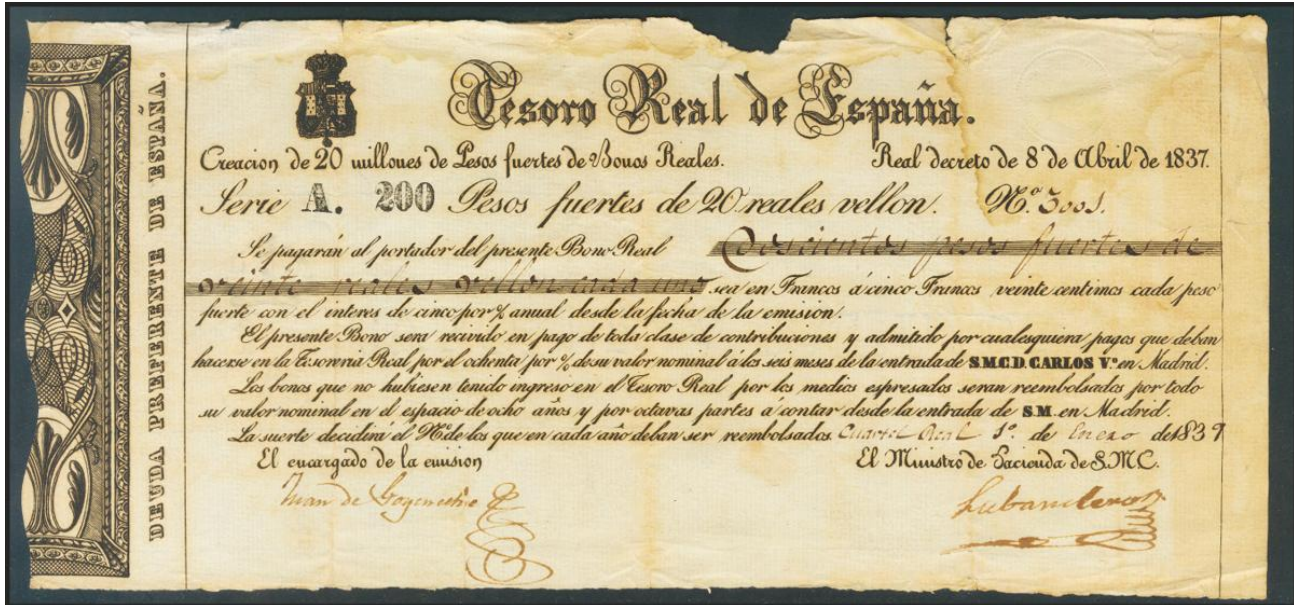 DEUDA PREFERENTE DE ESPAÑA.
Tesoro Real de España.
Creacion de 20 millones de Pesos fuertes de Bonos Reales. Real decreto de 8 de Abril de 1837.
Serie A. 200 Pesos fuertes de 20 reales vellon. N.º 3001.
Se pagarán al portador del presente Bono Real Doscientos pesos fuertes de
veinte reales vellon cada uno sea en Francos á cinco Francos veinte centimos cada peso
fuerte con el interes de cinco por % anual desde la fecha de la emisión.
El presente Bono sera recivido en pago de toda clase de contribuciones y admitido por cualesquiera pagos que deban
hacerse en la Tesoreria Real por el ochenta por % de su valor nominal á los seis meses de la entrada de S.M.C.D. CARLOS V.º en Madrid.
Los bonos que no hubiesen tenido ingreso en el Tesoro Real por los medios espresados seran reembolsados por todo
su valor nominal en el espacio de ocho años y por octavas partes á contar desde la entrada de S.M. en Madrid.
La suerte decidirá el Nº de los que en cada año deban ser reembolsados. Cuartel Real 1º. de Enero de 1839
El encargado de la emision El Ministro de Hacienda de S.M.C.
Juan de